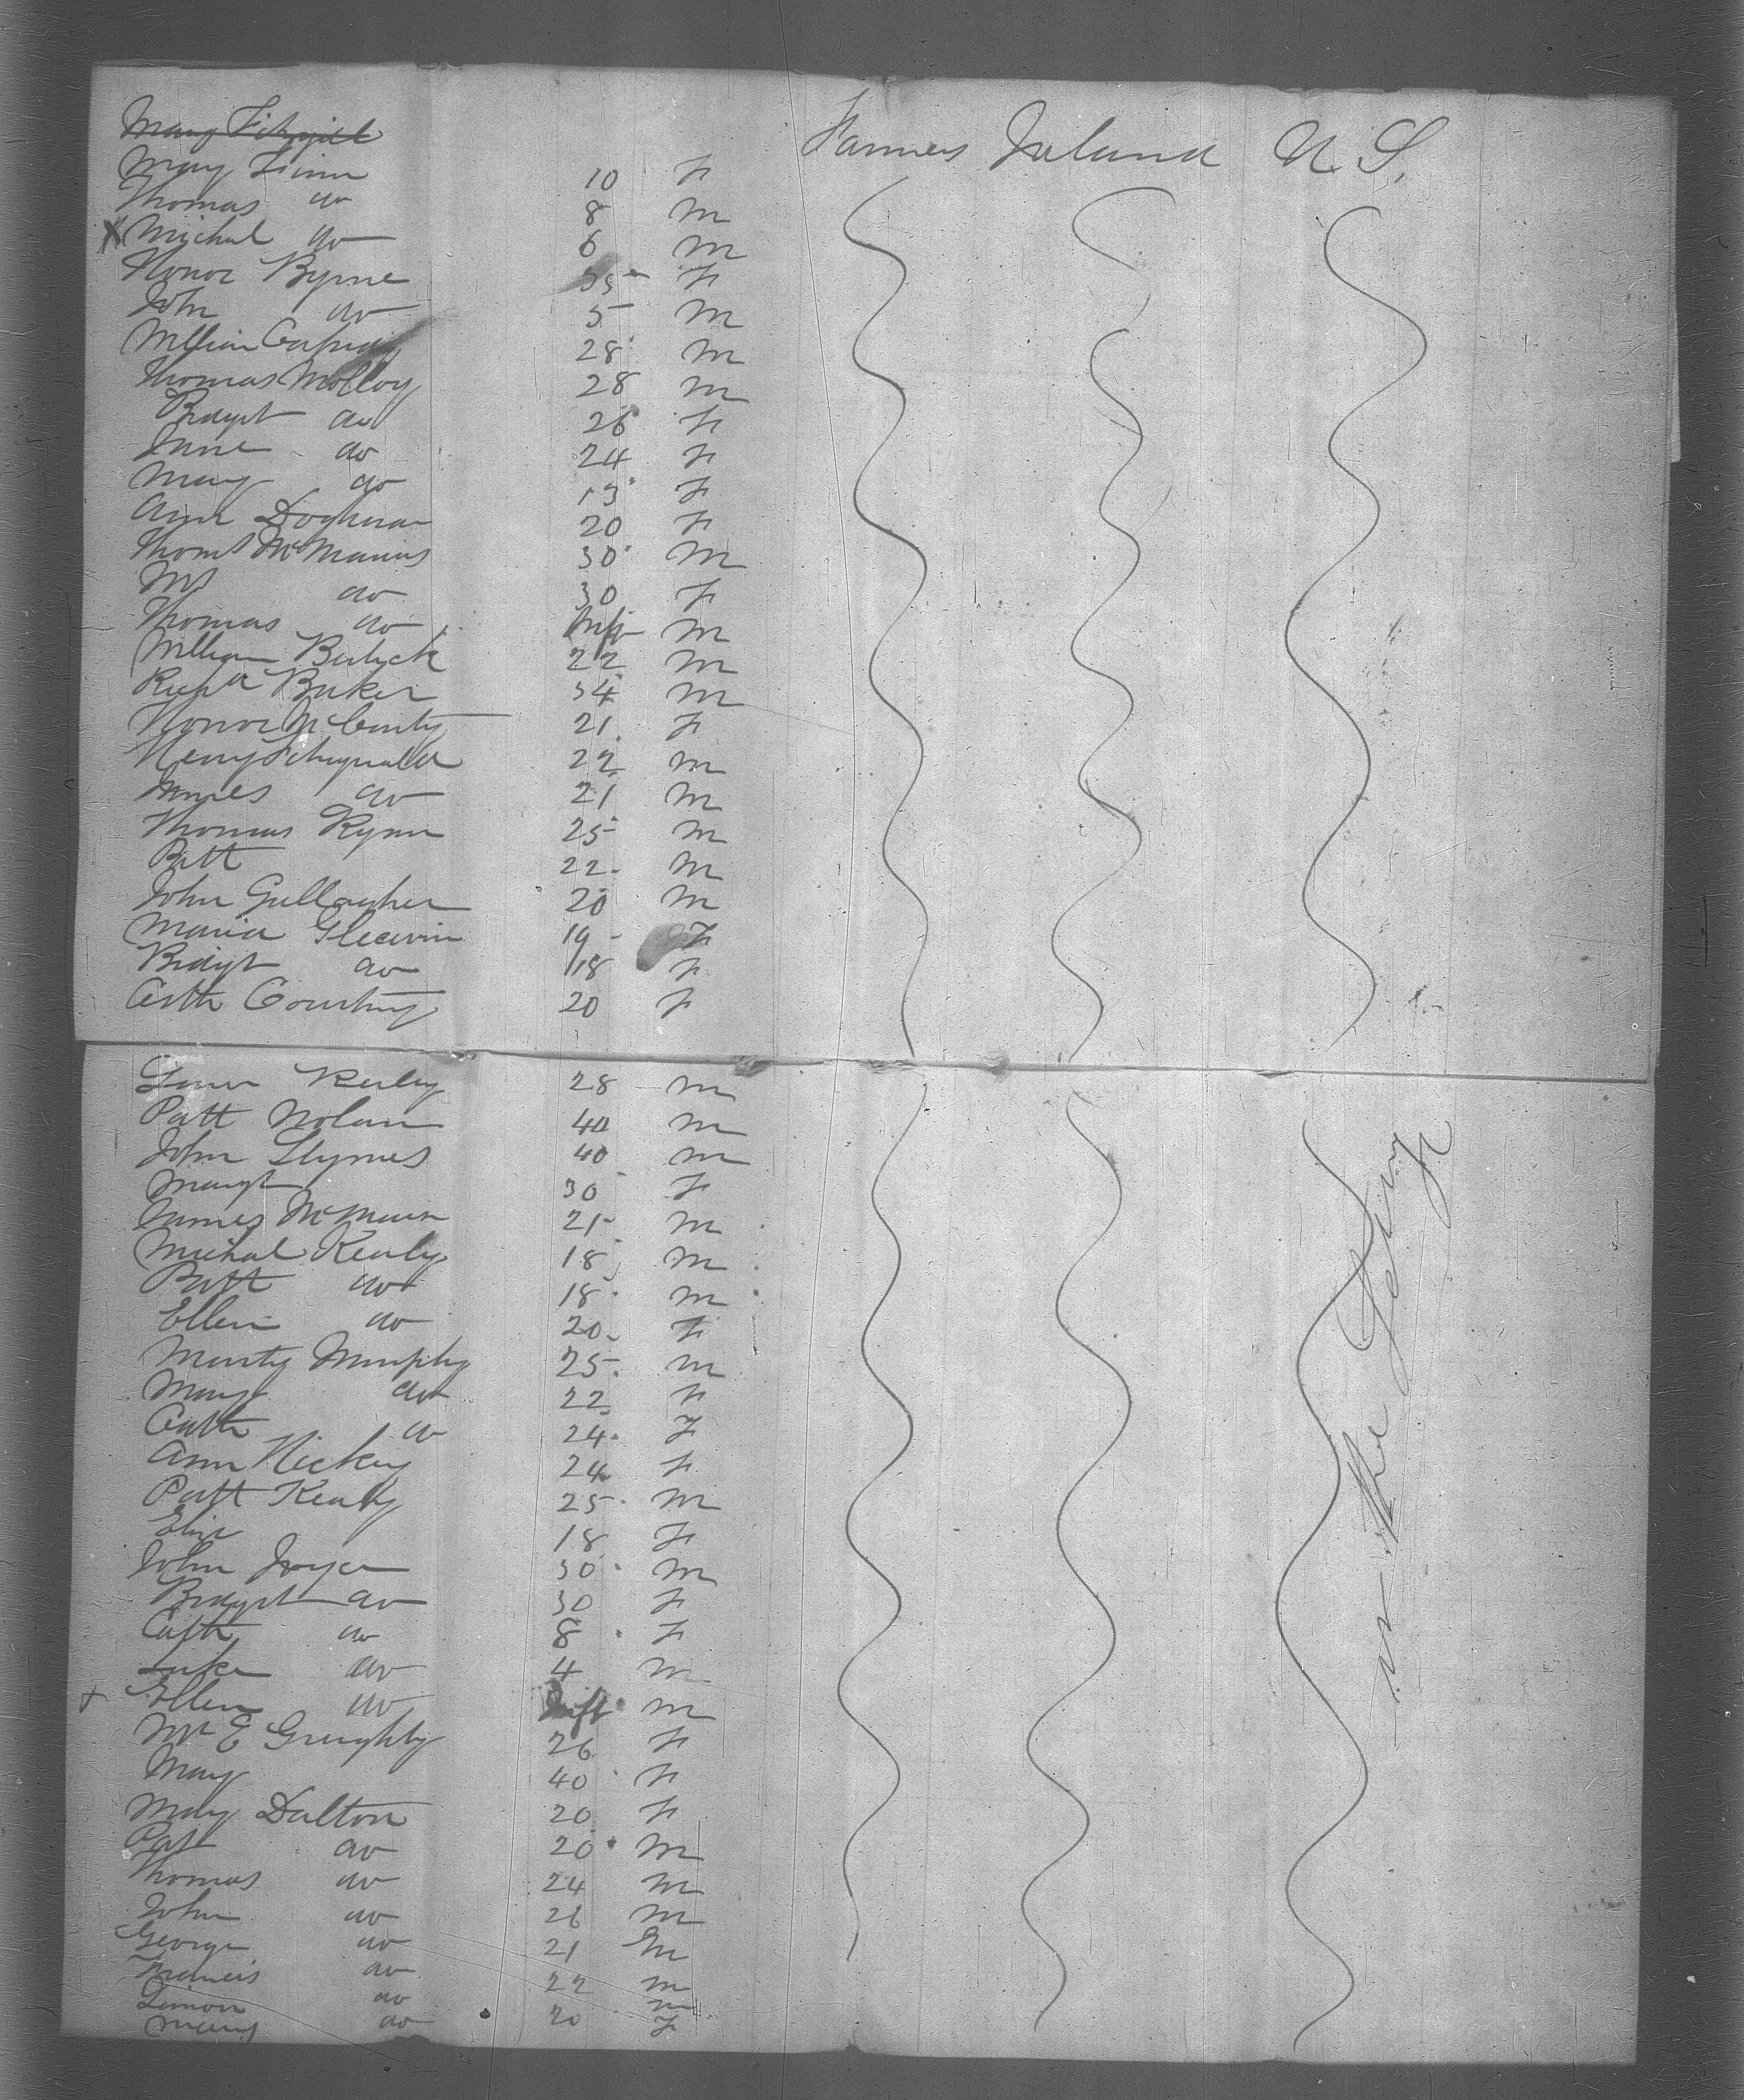 Farmers Ireland U.S.
Mary
Mary Finn 10 F
Thomas do 8 M
X Michal do 6 M
Honor Byrne 35 F
John do 5 M
William 28 M
Thomas Molloy 28 M
Bridget do 26 F
Jane do 24 F
Mary do 13 F
Ann 20 F
Thoms McManus 30 M
Mrs do 30 F
Thomas do Inft M
William 22 M
Richd Baker 34 M
Honor McCarty 21 F
Henry Fitzgerald 22 M
James do 21 M
Thomas Rynn 25 M
Patt 22 M
John Gallagher 20 M
Maria 19 F
Bridgt do 18 F
Cath Courtney 20 F
28 M
Patt Nolan 40 M
John 40 M
Margt 30 F
James 21 M
Michal Kealy 18 M
Patt do 18 M
Ellen do 20 F
Marty Murphy 25 M
Mary do 22 F
Cath do 24 F
Ann Hickey 24 F
Patt Kealy 25 M
Eliz 18 F
John Joyce 30 M
Bridget do 30 F
Cath do 8 F
Luke do 4 M
+ Ellen do Inft M
E 26 F
Mary 40 F
Mary Dalton 20 F
Pat do 20 M
Thomas do 24 M
John do 26 M
George do 21 M
Francis do 22 M
Simon do M
Mary do 20 F
the